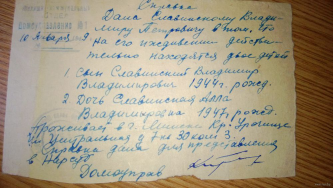 Справка
Дана Славинскому Влади-
миру Петровичу в том, что
на его иждивении действи-
тельно находятся двое детей
1. Сын Славинский Владимир
Владимирович 1944 г. рожд.
2. Дочь Славинская Алла
Владимировна 1947 г. рожд.
Проживает в г.
ул. Центральная д 7 кв 30 ком 3.
Справка дана для представления
в
Домоуправ